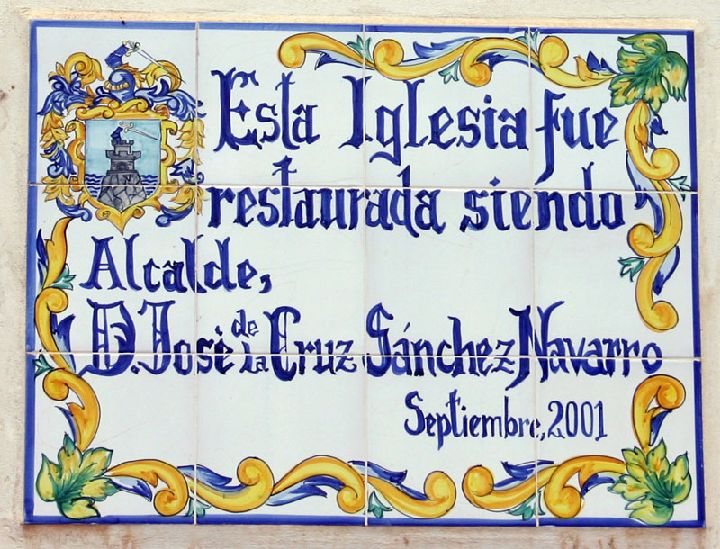 Esta Iglesia fue
restaurada siendo
Alcalde,
D. Josè de la Cruz Sánchez Navarro
Septiembre, 2001